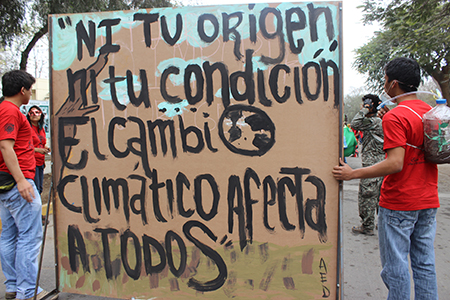 "Ni Tu oRigen
ni tu condición
El cambio
climático AFecta
A TodoS"